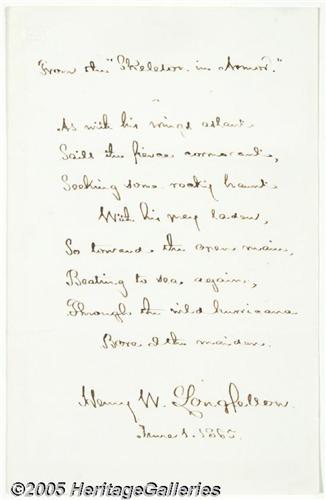 From the "Skeleton in Armor."
As with his wings aslant
Sails the fierce cormorant,
Seeking some rocky haunt
With his prey laden,
So towards the open main,
Beating to sea again,
Through the wild hurricane
Bore I the maiden.
Henry W. Longfellow
June 1. 1865.
©2005 HeritageGalleries